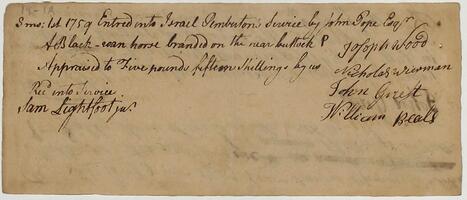 3 mo: 1st 1759 Entred into Israel Pemberton's Service by John Pope Esqr
A Black roan horse branded on the near buttock P
Joseph Wood
Appraised to Five pounds fifteen Shillings by us
Nicholas Wierman
Rec into Service
John Griest
Sam Lightfoot jur
William Beals